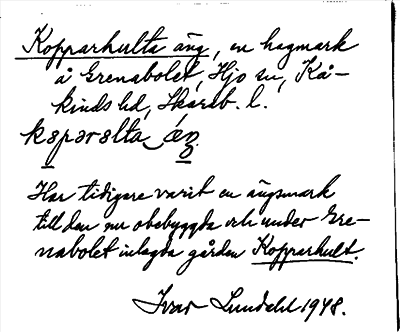 Kopparhulta äng, en hagmark
å Grenabolet, Hjo sn, Kå-
kinds hd, Skarab. l.
kɞpərɞlta ɶŋ.
Har tidigare varit en ängsmark
till den nu obebyggda och under Gre-
nabolet inlagda gården Kopparhult.
Ivar Lundahl 1948.